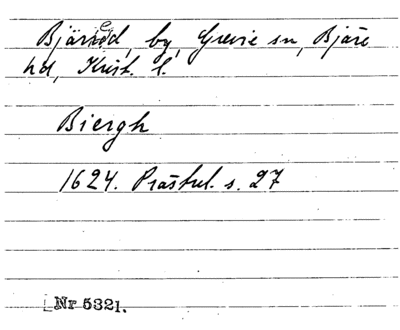 Bjäröd, by, Grevie sn, Bjäre
hd, Krist. l.
Biergh
1624. Prästrel. s. 27
Nr 5321.